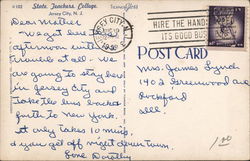 K 102 State Teachers College.
Jersey City, N. J.
Dear Mother
We got bus
afternoon with
travels at all - We
are going to stay here
in Jersey City and
take the bus back
forth to New York.
it only takes 10 mins.
& you get off right down town.
Love Dorothy
JERSEY CITY, N.J.
1958
HIRE THE HAND
IT'S GOOD BUS
POST CARD
Mrs. James Lynch
1402 Greenwood ave
Rockford
Ill.
1.00